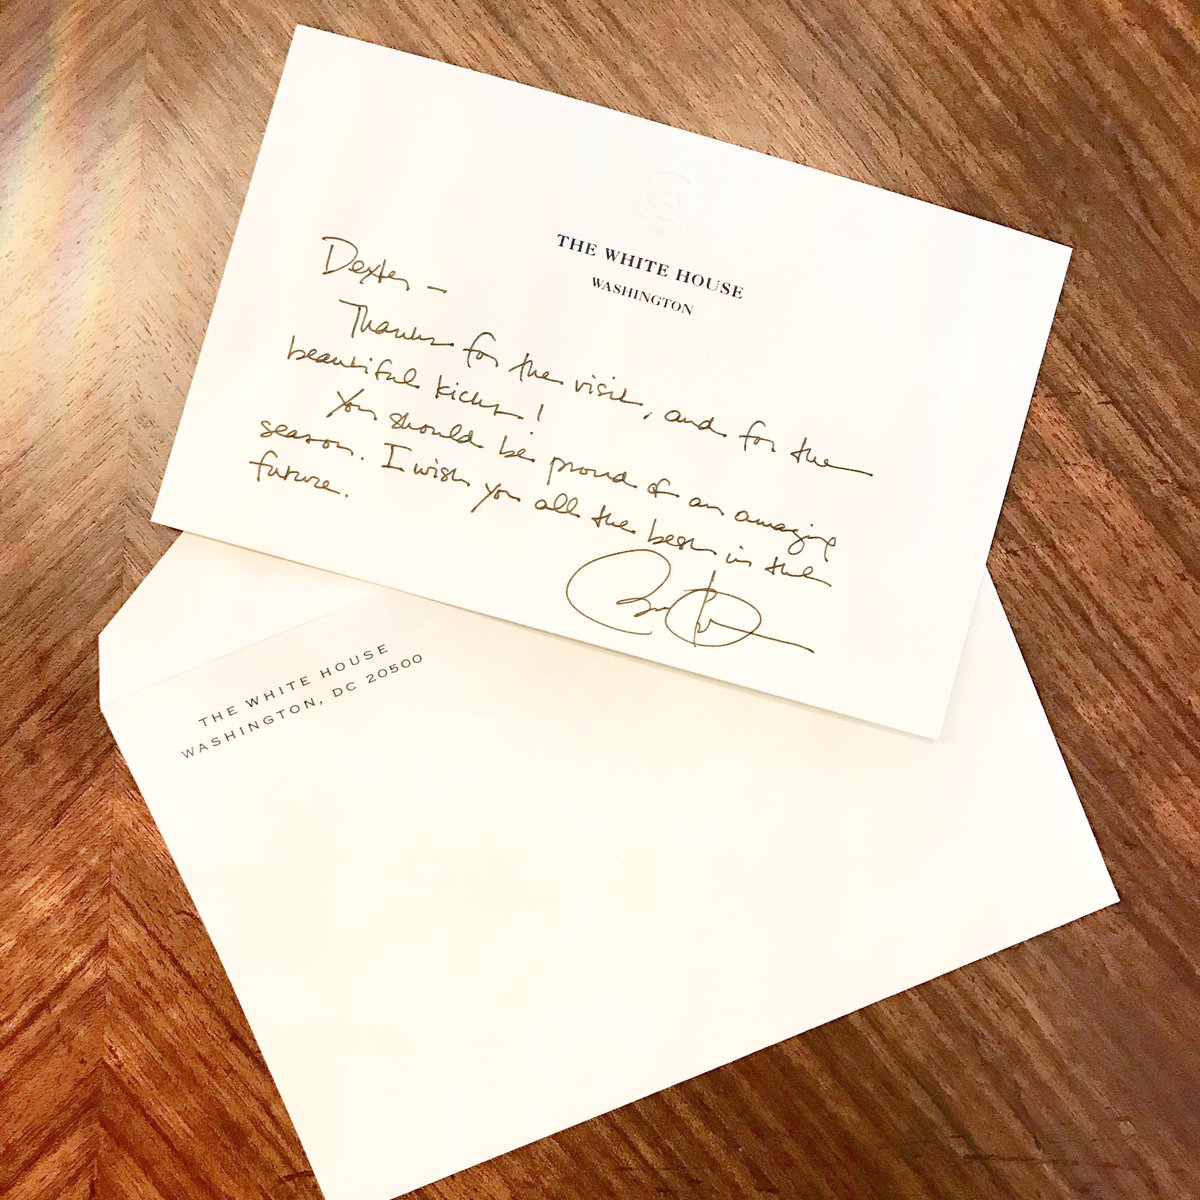 THE WHITE HOUSE
WASHINGTON
Dexter –
Thanks for the visit, and for the
beautiful kicks!
You should be proud of an amazing
season. I wish you all the best in the
future.
THE WHITE HOUSE
WASHINGTON, DC 20500